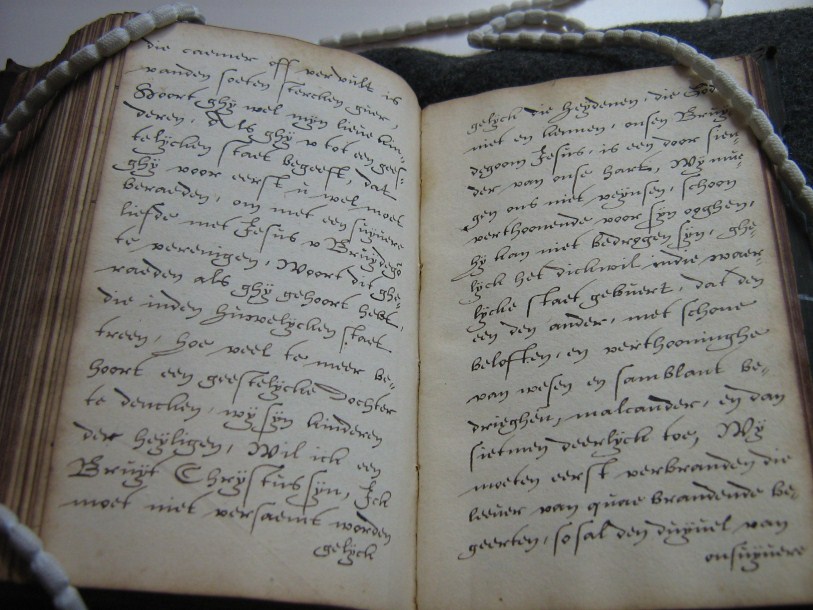 die caemer off vervult is
vanden soeten stercken geur,
Hoort ghÿ wel mÿn lieve kin-
deren, Als ghÿ u tot een gees-
telÿcken staet begeeft, dat
ghÿ voor eerst ú wel moet
beraeden, om met een suÿvere
liefde met Jesus v Bruÿdegō
te verenigen, Woort dit ghe-
raeden als ghÿ gehoort hebt,
die inden huwelÿcken staet
treen, hoe veel te meer be-
hoort een geestelÿcke Dochter
te dencken, wÿ sÿn kinderen
der heÿligen, Wil ick een
Bruÿt Chrÿstus sÿn, Ick
moet niet versaemt worden
gelÿck
gelÿck die heÿdenen, die God
niet en kennen, onsen Bruÿ-
degoom Jesus, is een door sien-
der van onse hart, Wÿ mue-
gen ons niet veÿnsen, schoon
verthoonende voor sÿn ooghen,
hÿ kan niet bedrogen sÿn, ghe-
lÿck het dickwil indie waer-
lÿcke staet gebeurt, dat den
een den ander, met schone
beloften, en verthooninghe
van wesen en samblant be-
drieghen, malcander, en dan
sietmen deerlÿck toe, Wÿ
moeten eerst verbranden die
leever van quae brandende be-
geerten, so sal den duÿvel van
onsuÿvere